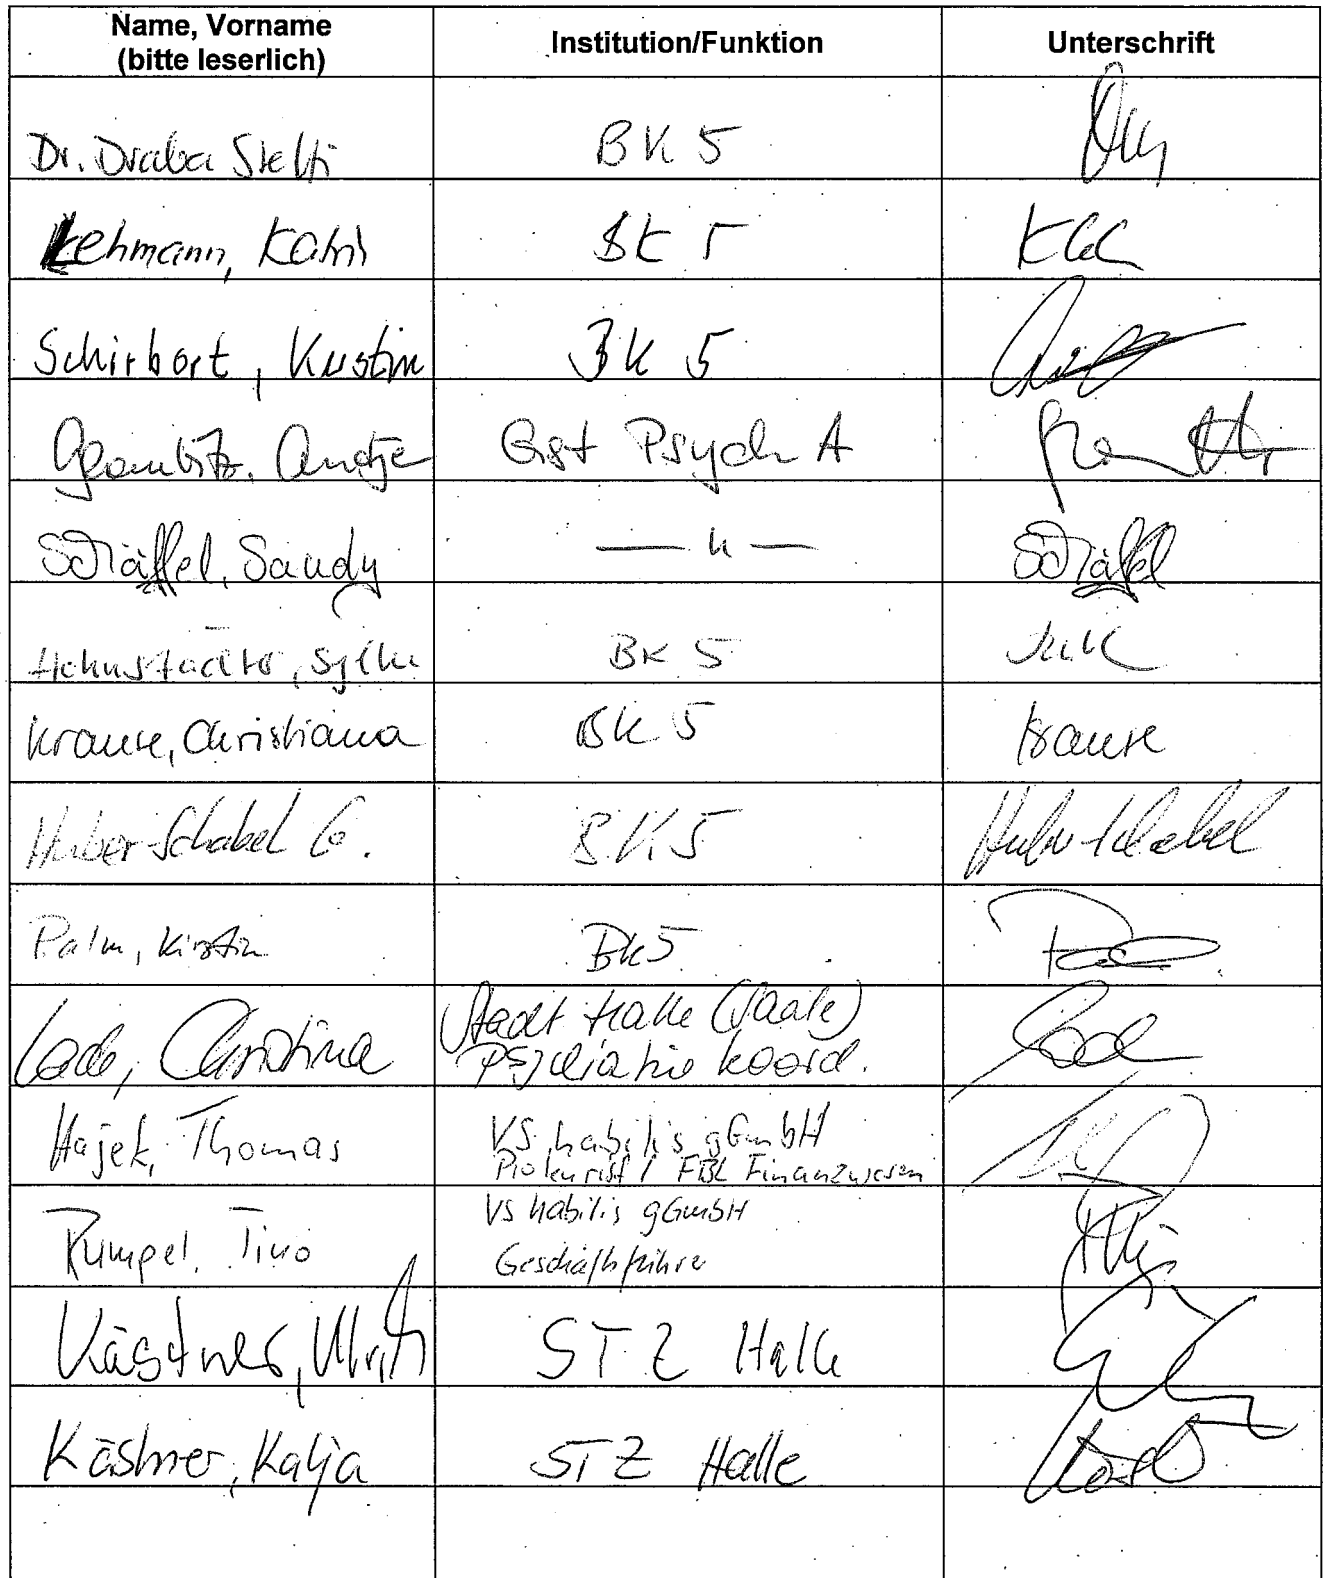 Name, Vorname
(bitte leserlich)
Institution/Funktion
Unterschrift
Dr. Draba
BK 5
Lehmann, Katrin
BK 5
Schirbort, Kerstin
BK 5
Antje
Gst Psych A
Schäffel, Sandy
— " —
Schäffel
BK 5
Krause, Christiana
BK 5
Krause
Huber-Schabel G.
B.K.5
Huber-Schabel
Palm, Kirstin
BK5
Lade, Christina
Stadt Halle (Saale)
Psychiatriekoord.
Hajek, Thomas
VS habilis gGmbH
Prokurist / FBL Finanzwesen
Rumpel, Tino
VS habilis gGmbH
Geschäftsführer
Kästner, Ulrich
STZ Halle
Kästner, Katja
STZ Halle